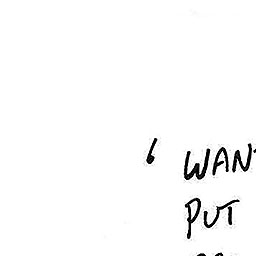 ' WANT
PUT